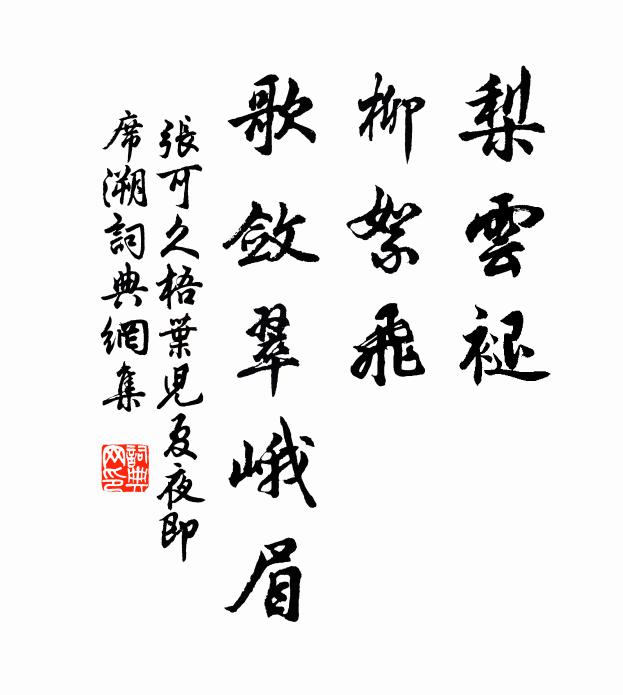 梨雲褪
柳絮飛
歌斂翠峨眉
張可久梧葉兒夏夜即
席溯詞典網集
詞典網印